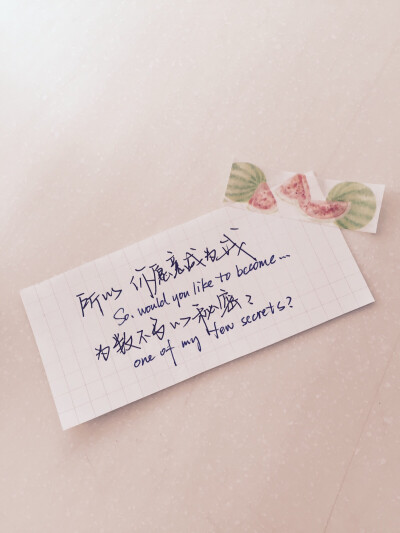 所以 你愿意成为我
So. would you like to become...
为数不多的秘密?
one of my few secrets?